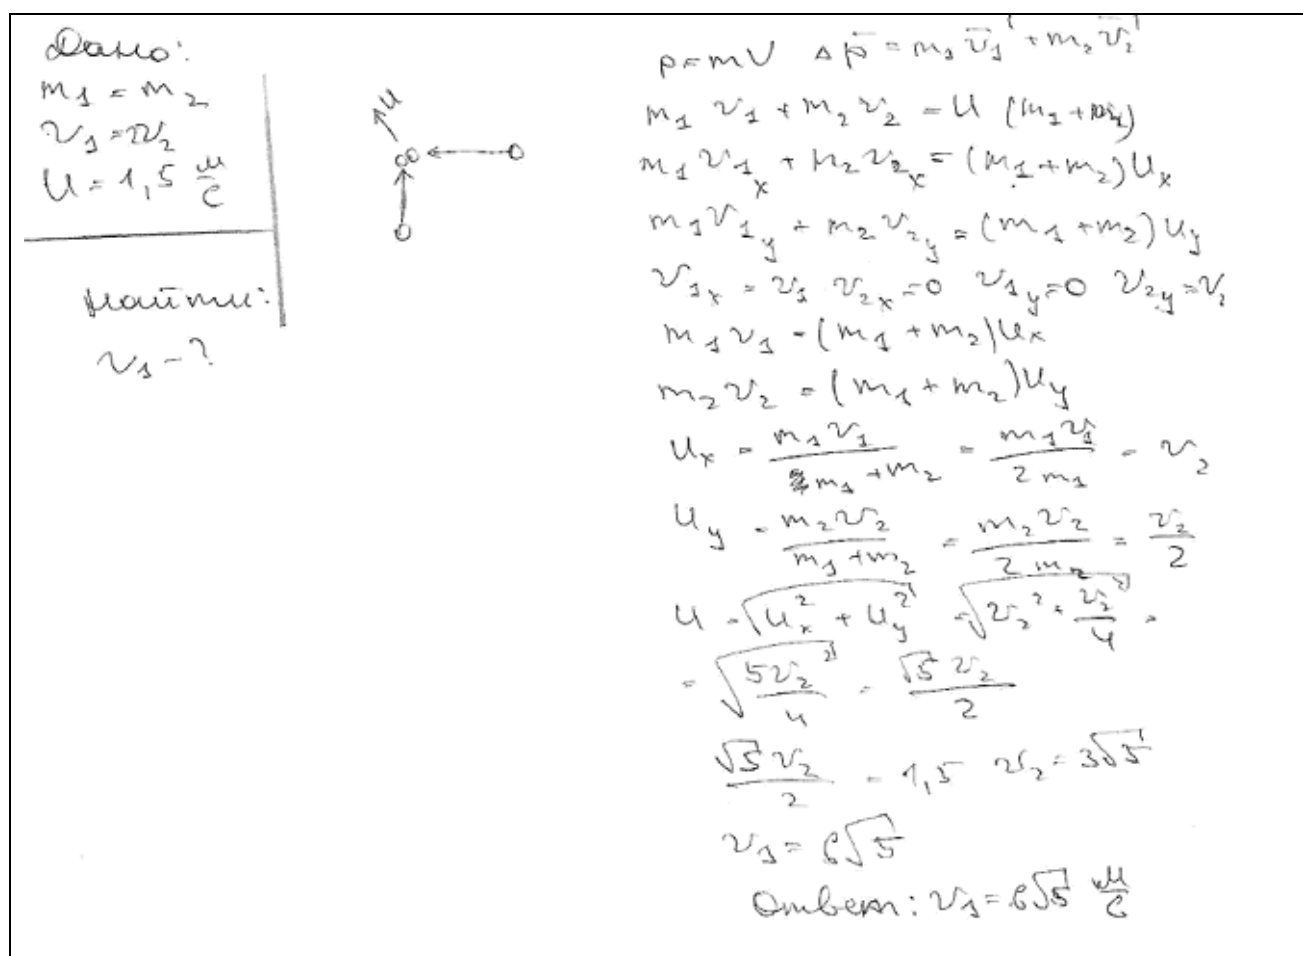 Дано:
m₁ = m₂
v₁ = 2v₂
U = 1,5 м/с
Найти:
v₁ - ?
U
p = mV Δp̄ = m₁v̄₁' + m₂v̄₂'
m₁ v₁ + m₂ v₂ = U (m₁ + m₂)
m₁ v₁ₓ + m₂ v₂ₓ = (m₁ + m₂) Uₓ
m₁ v₁y + m₂ v₂y = (m₁ + m₂) Uy
v₁ₓ = v₁ v₂ₓ = 0 v₁y = 0 v₂y = v₂
m₁ v₁ = (m₁ + m₂) Uₓ
m₂ v₂ = (m₁ + m₂) Uy
Uₓ = m₁ v₁ / (m₁ + m₂) = m₁ v₁ / 2 m₁ = v₂
Uy = m₂ v₂ / (m₁ + m₂) = m₂ v₂ / 2 m₂ = v₂ / 2
U = √(Uₓ² + Uy²) = √(v₂² + v₂²/4) =
= √(5v₂²/4) = √5 v₂ / 2
√5 v₂ / 2 = 1,5 v₂ = 3√5
v₁ = 6√5
Ответ: v₁ = 6√5 м/с